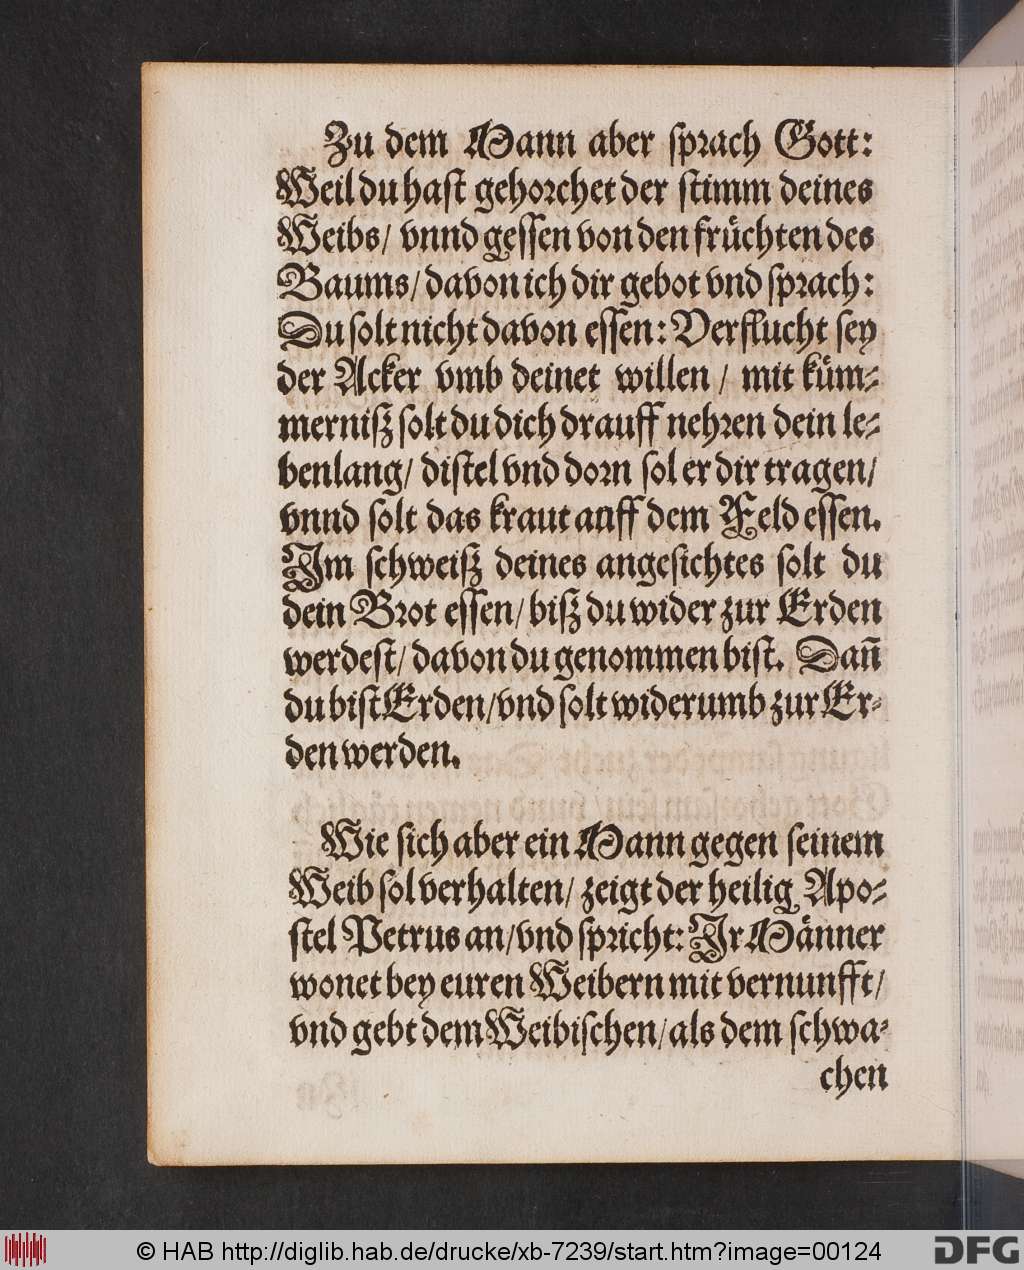 Zu dem Mann aber sprach Gott:
Weil du hast gehorchet der stimm deines
Weibs/ vnnd gessen von den früchten des
Baums/ davon ich dir gebot vnd sprach:
Du solt nicht davon essen: Verflucht sey
der Acker vmb deinet willen / mit küm-
merniß solt du dich drauff nehren dein le-
benlang/ distel vnd dorn sol er dir tragen/
vnnd solt das kraut auff dem Feld essen.
Im schweiß deines angesichtes solt du
dein Brot essen/ biß du wider zur Erden
werdest/ davon du genommen bist. Dañ
du bist Erden/ vnd solt widerumb zur Er-
den werden.
Wie sich aber ein Mann gegen seinem
Weib sol verhalten/ zeigt der heilig Apo-
stel Petrus an/ vnd spricht: Ir Männer
wonet bey euren Weibern mit vernunfft/
vnd gebt dem Weibischen/ als dem schwa-
chen
© HAB http://diglib.hab.de/drucke/xb-7239/start.htm?image=00124
DFG